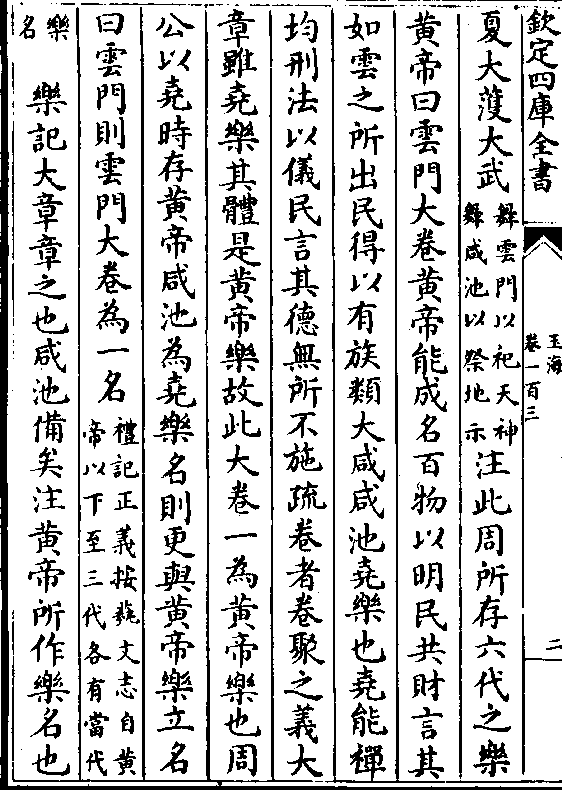 欽定四庫全書
玉海
卷一百三
二
夏大濩大武
舞雲門以祀天神
舞咸池以祭地示
注此周所存六代之樂
黃帝曰雲門大卷黃帝能成名百物以明民共財言其
如雲之所出民得以有族類大咸咸池堯樂也堯能禪
均刑法以儀民言其德無所不施疏卷者卷聚之義大
章雖堯樂其體是黃帝樂故此大卷一為黃帝樂也周
公以堯時存黃帝咸池為堯樂名則更與黃帝樂立名
曰雲門則雲門大卷為一名
禮記正義按藝文志自黃
帝以下至三代各有當代
樂
名
樂記大章章之也咸池備矣注黃帝所作樂名也